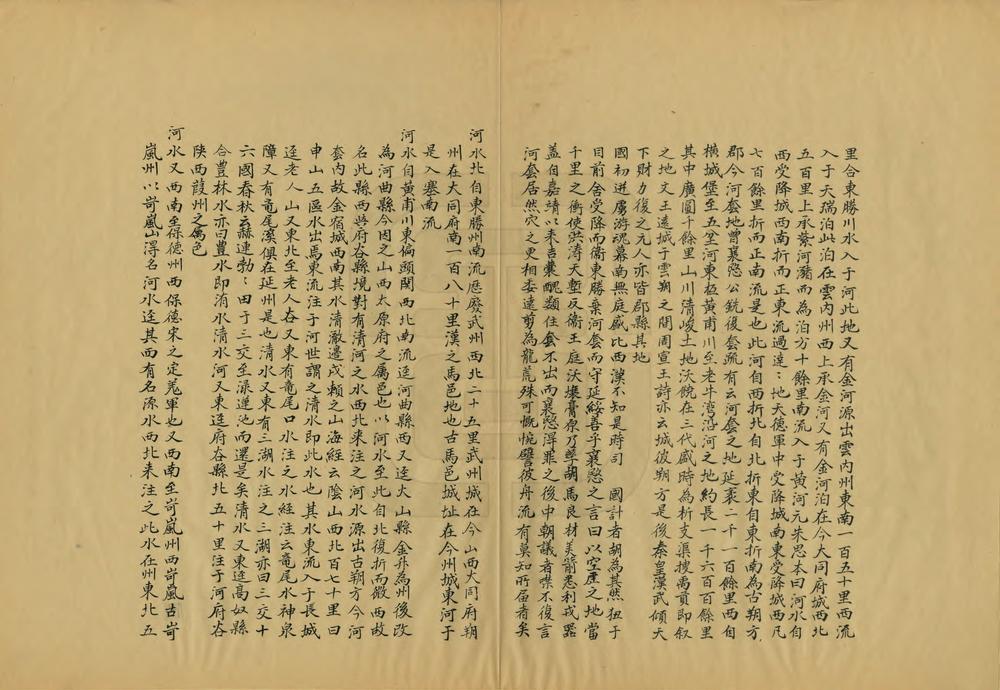 里合東勝川水入于河此地又有金河源出雲內州東南一百五十里西流
入于天瑞泊此泊在雲內州西上承金河又有金河泊在今大同府城西北
五百里上承紫河瀦而為泊方十餘里南流入于黃河元朱思本曰河水自
西受降城西南折而正東流過達達地天德軍中受降城南東受降城西凡
七百餘里折而正南流是也此河自西折北自北折東自東折南為古朔方
郡今河套地曾襄愍公銑復套疏有云河套之地延袤二千一百餘里西自
橫城堡至五堂河東極黃甫川至老牛灣沿河之地約長一千六百百餘里
其中廣圓十餘里山川清峻土地沃饒在三代盛時為析支渠搜禹貢即叙
之地文王遠城于雲朔之間周宣王詩亦云城彼朔方是後秦皇漢武傾天
下財力復之元人亦皆郡縣其地
國初逆虜游魂幕南無庭盛比西漢不知是時司 國計者胡為其然狃于
目前舍受降而衞東勝棄河套而守延綏善乎襄愍之言曰以空虛之地當
千里之衝使洪濤天塹反衞王庭沃壤膏原乃畢胡馬良材美箭悉利戎器
蓋自嘉靖以来吉囊醜類住套不出而襄愍淂罪之後中朝議者噤不復言
河套居然穴之更相委遠剪為龍荒殊可慨惋譬彼舟流有莫知所屆者矣
河水北自東勝州南流歷廢武州西北二十五里武州城在今山西大同府朔
州在大同府南一百八十里漢之馬邑地也古馬邑城址在今州城東河于
是入塞南流
河水自黃甫川東偏頭関西北南流逕河曲縣西又逕火山縣金升為州後改
為河曲縣今因之山西太原府之屬邑也以河水至此自北復折而微西故
名此縣西與府谷縣境對有清河之水西北来注之河水源出古朔方今河
套內故金宿城西南其水清澈邊戍賴之山海經云陰山西北百七十里曰
申山五區水出焉東流注于河世謂之清水即此水也其水東流入于長城
逕老人山又東北至老人谷又東有竜尾口水注之水經注云竜尾水神泉
障又有竜尾溪俱在延州是也清水又東有三湖水注之三湖亦曰三交十
六國春秋云赫連勃勃田于三交至渌蓮池而還是矣清水又東逕高奴縣
合豐林水亦曰豊水即洧水清水河又東逕府谷縣北五十里注于河府谷
陕西葭州之屬邑
河水又西南至保德州西保德宋之定羌軍也又西南至岢嵐州西岢嵐古岢
嵐州以岢嵐山淂名河水逕其西有名源水西北来注之此水在州東北五